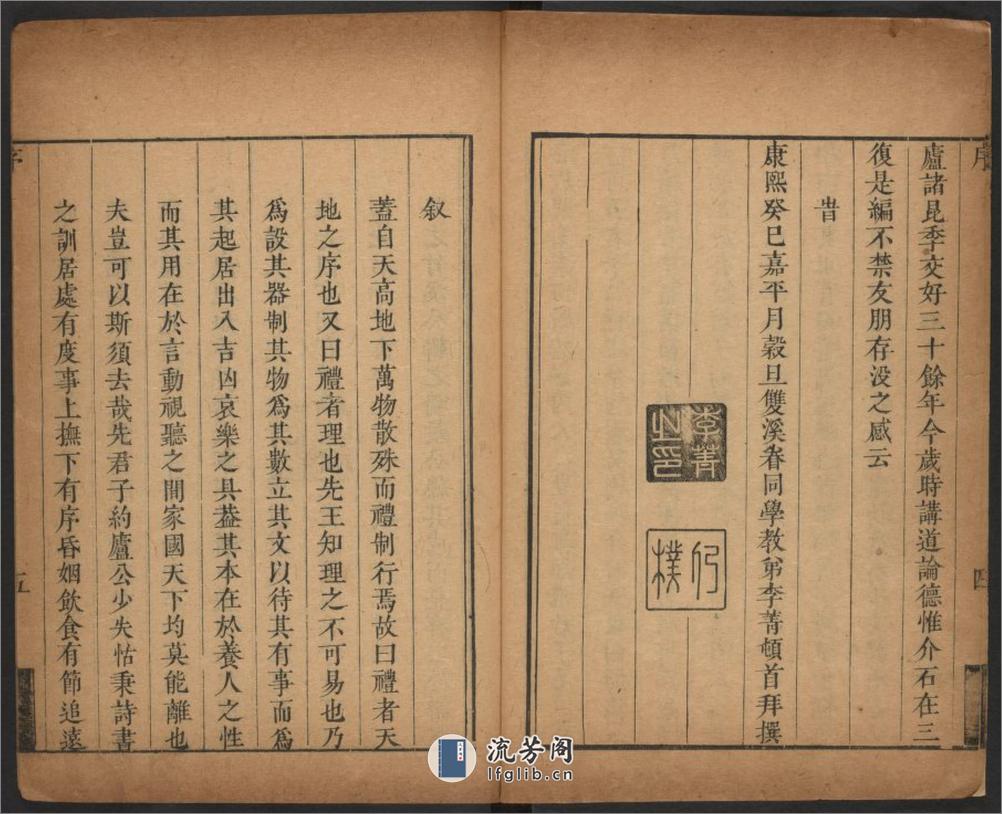 序
廬諸昆季交好三十餘年今歲時講道論德惟介石在三
復是編不禁友朋存没之感云
旹
康熙癸巳嘉平月糓旦雙溪眷同學教弟李菁頓首拜撰
李菁之印
仍樸
四
叙
蓋自天高地下萬物散殊而禮制行焉故曰禮者天
地之序也又曰禮者理也先王知理之不可易也乃
爲設其器制其物爲其數立其文以待其有事而爲
其起居出入吉凶哀樂之具葢其本在於養人之性
而其用在於言動視聽之間家國天下均莫能離也
夫豈可以斯須去哉先君子約廬公少失怙秉詩書
之訓居處有度事上撫下有序昏姻飲食有節追遠
序
五
流芳阁
lfglib.cn